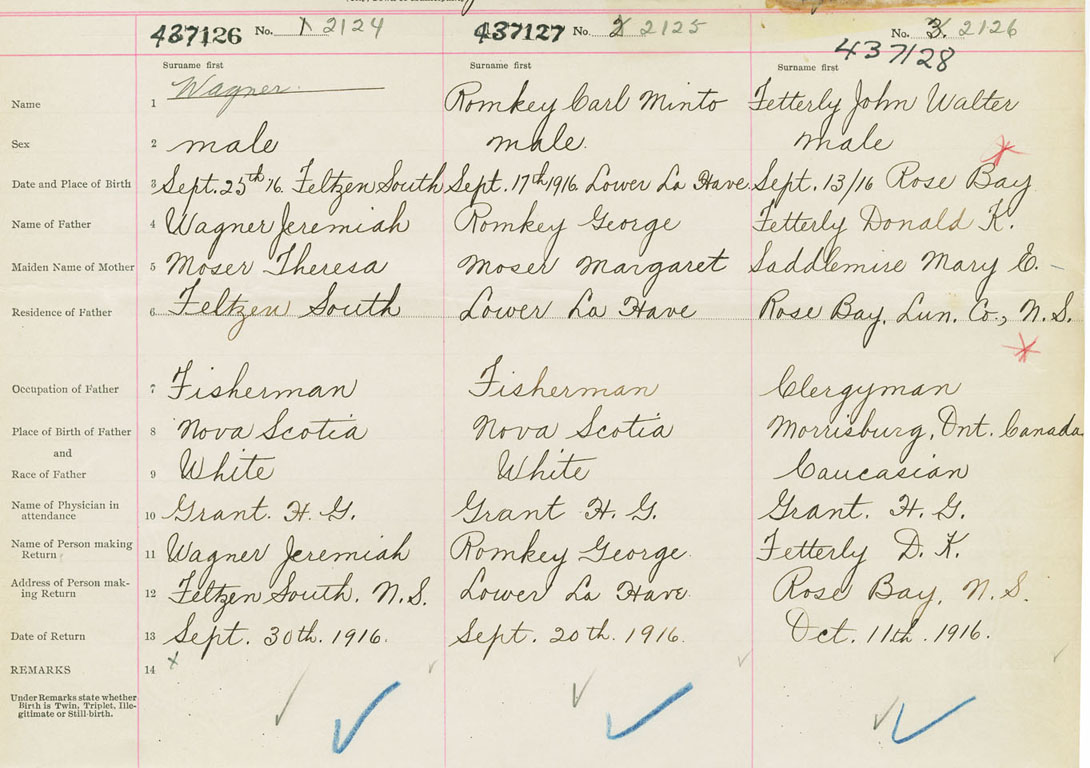 437126 No. 1 2124 437127 No. 2 2125 No. 3. 2126
437128
Surname first Surname first Surname first
Name 1 Wagner Romkey Carl Minto Fetterly John Walter
Sex 2 male male. male
Date and Place of Birth 3 Sept. 25th 16. Feltzen South Sept. 17th 1916 Lower La Have Sept. 13/16 Rose Bay
Name of Father 4 Wagner Jeremiah Romkey George Fetterly Donald K.
Maiden Name of Mother 5 Moser Theresa Moser Margaret Saddlemire Mary E.
Residence of Father 6 Feltzen South Lower La Have Rose Bay, Lun. Co., N.S.
Occupation of Father 7 Fisherman Fisherman Clergyman
Place of Birth of Father 8 Nova Scotia Nova Scotia Morrisburg, Ont. Canada
and
Race of Father 9 White White Caucasian
Name of Physician in
attendance 10 Grant. H. G. Grant H. G. Grant. H. G.
Name of Person making
Return 11 Wagner Jeremiah Romkey George Fetterly D. K.
Address of Person mak-
ing Return 12 Feltzen South. N.S. Lower La Have Rose Bay, N.S.
Date of Return 13 Sept. 30th. 1916. Sept. 20th. 1916. Oct. 11th. 1916.
REMARKS 14
Under Remarks state whether
Birth is Twin, Triplet, Ille-
gitimate or Still-birth.